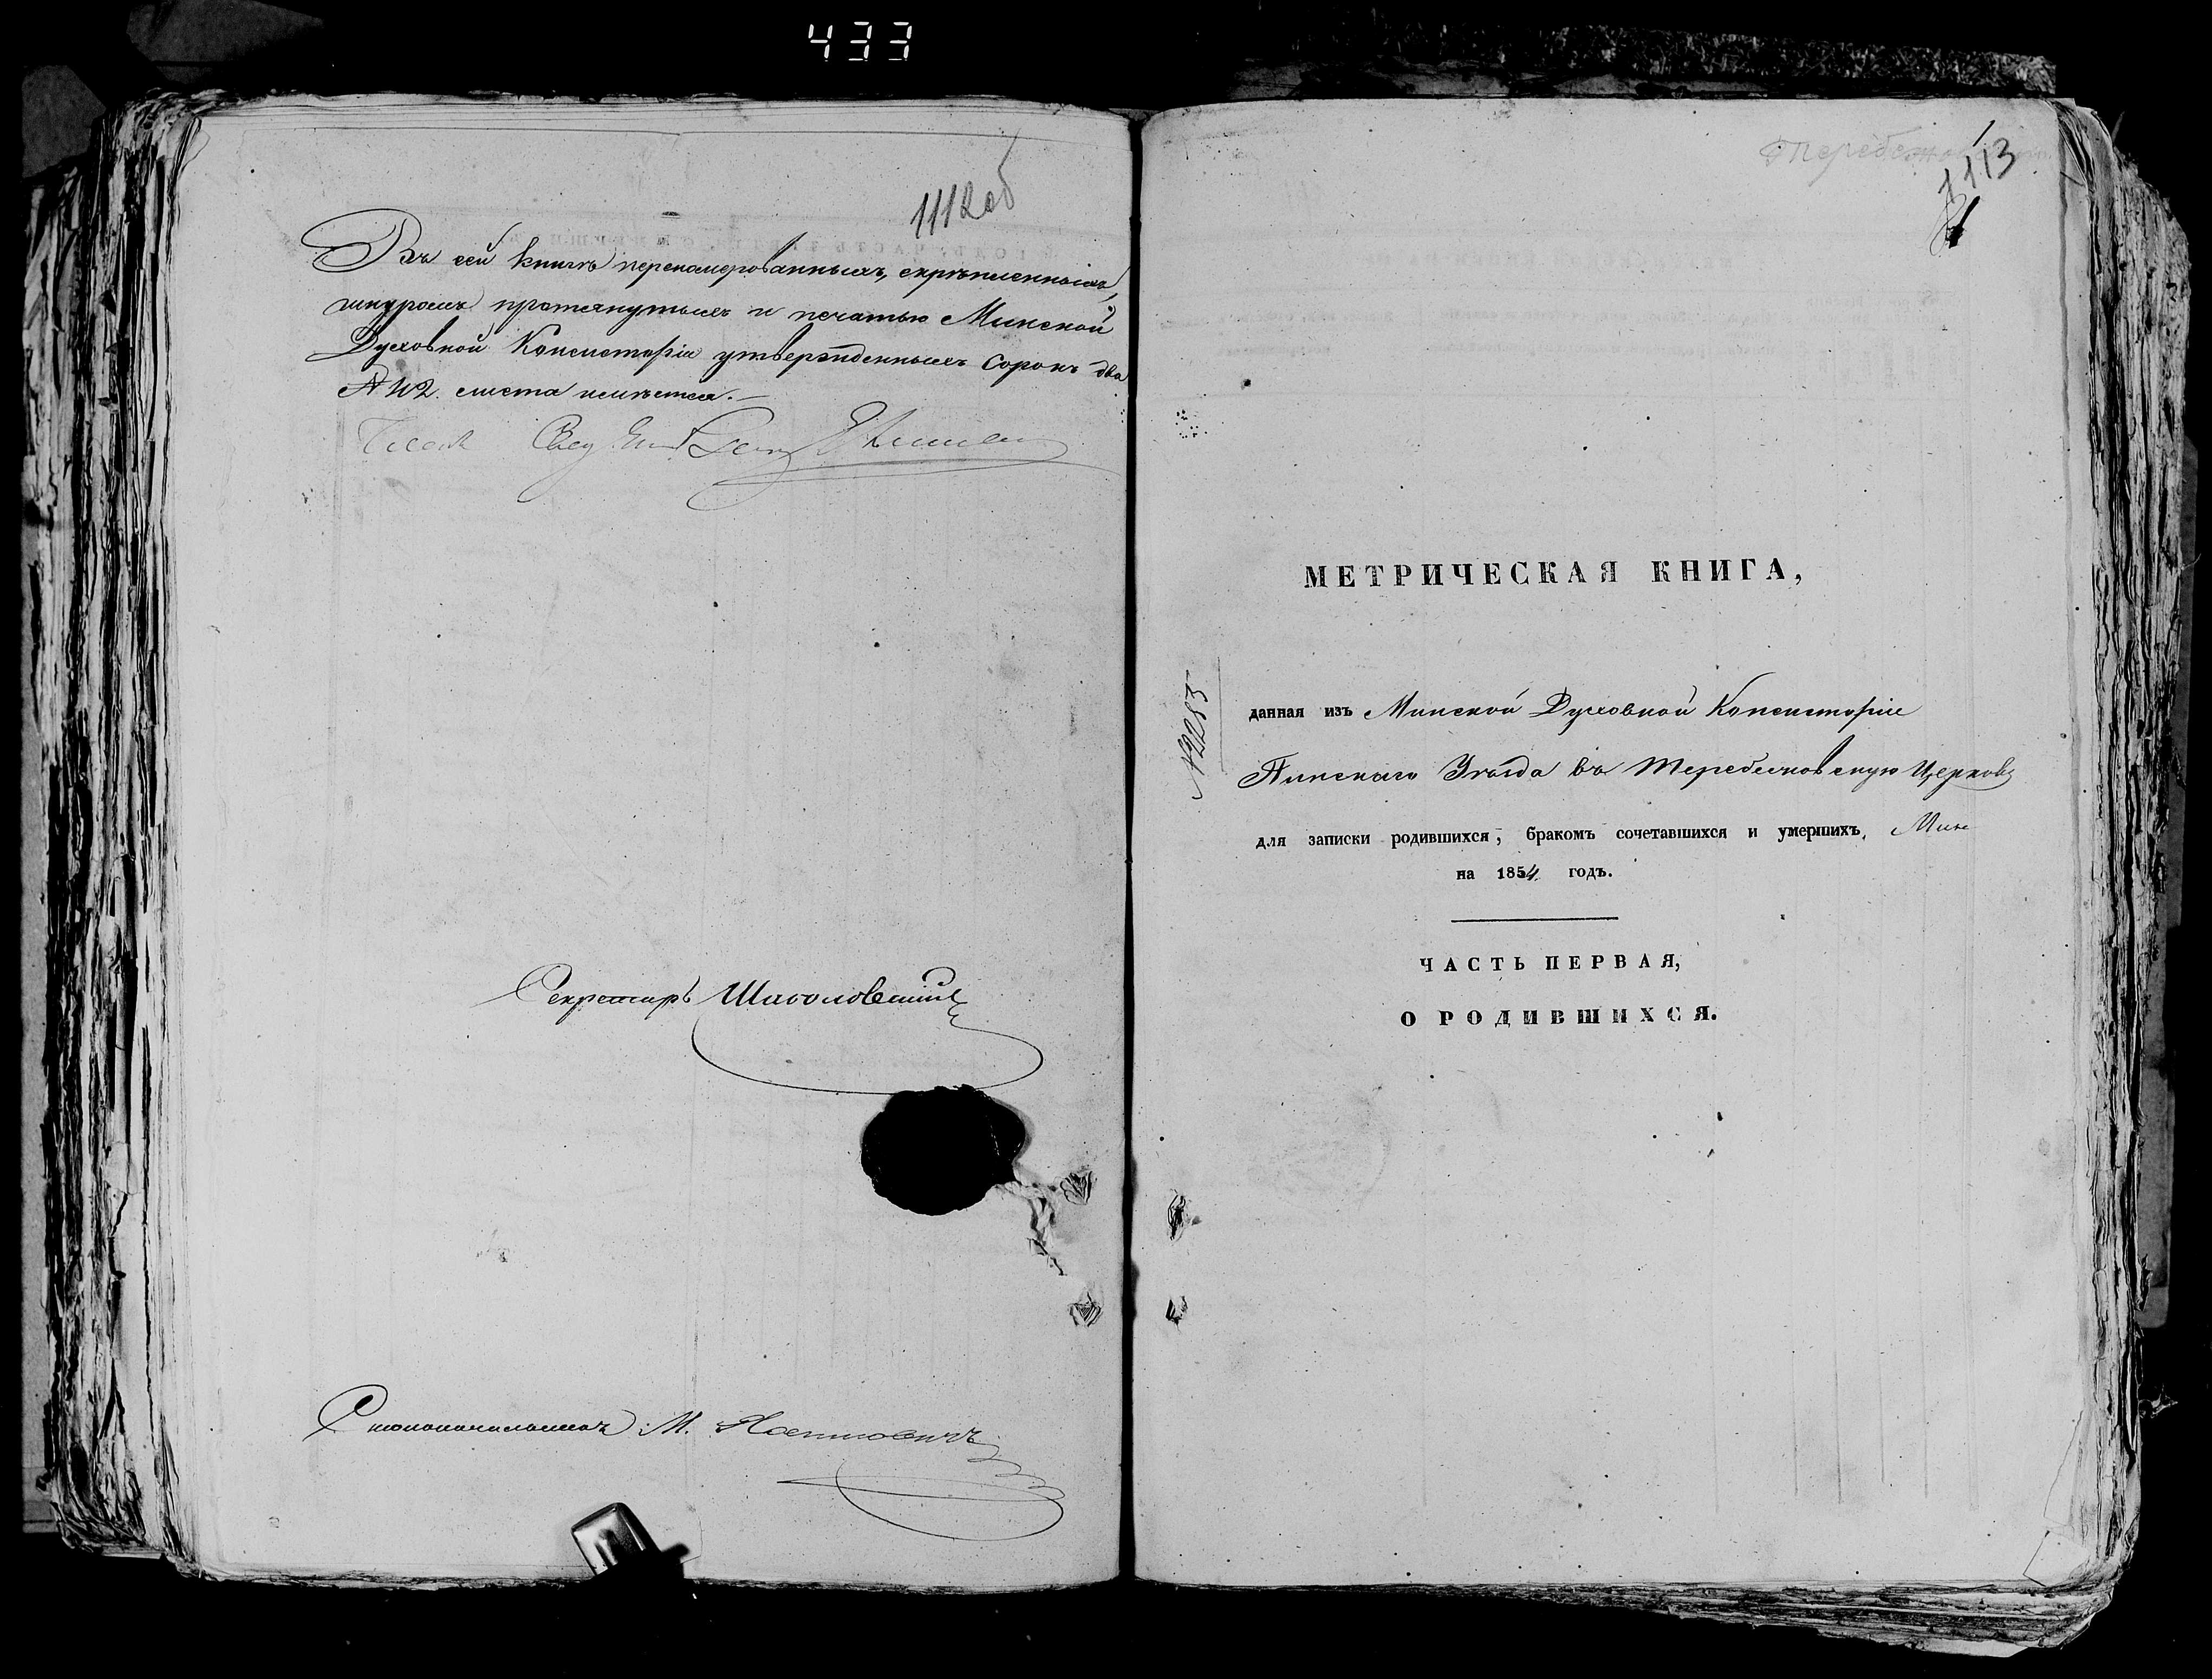 433
1112об
Въ сей книгѣ перенумерованныхъ, скрѣпленныхъ,
шнуромъ протянутыхъ и печатью Минской
Духовной Консисторіи утвержденныхъ сорокъ два
№ 42. листа имѣется.—
Секретарь Шаболовскій
Столоначальникъ М.
1113
МЕТРИЧЕСКАЯ КНИГА,
№ 2285
данная изъ Минской Духовной Консисторіи
Пинскаго Уѣзда въ Теребежовскую Церковь
для записки родившихся, бракомъ сочетавшихся и умершихъ,
на 1854 годъ.
ЧАСТЬ ПЕРВАЯ,
О РОДИВШИХСЯ.